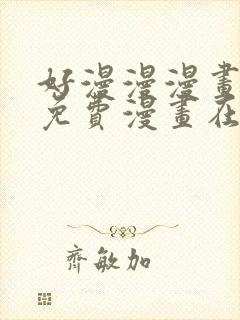 好漫漫漫畫
免費漫畫在
齊敏加